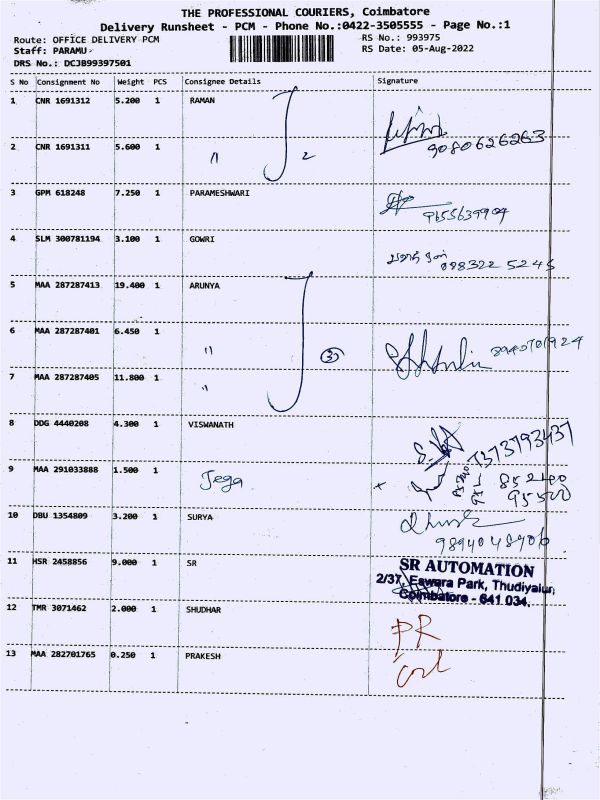 THE PROFESSIONAL COURIERS, Coimbatore
Delivery Runsheet - PCM - Phone No.:0422-3505555 - Page No.:1
Route: OFFICE DELIVERY PCM
RS No.: 993975
Staff: PARAMU
RS Date: 05-Aug-2022
DRS No.: DCJB99397501
S No Consignment No Weight PCS Consignee Details Signature
1 CNR 1691312 5.200 1 RAMAN
2 CNR 1691311 5.600 1 " 2 9080626263
3 GPM 618248 7.250 1 PARAMESHWARI 9655639904
4 SLM 300781194 3.100 1 GOWRI
5 MAA 287287413 19.400 1 ARUNYA
6 MAA 287287401 6.450 1 " 3
7 MAA 287287405 11.800 1 "
8 DDG 4440208 4.300 1 VISWANATH 7373793437
9 MAA 291033888 1.500 1 Jega
10 DBU 1354809 3.200 1 SURYA 9894048906
11 HSR 2458856 9.000 1 SR SR AUTOMATION
2/37, Eswara Park, Thudiyalur,
Coimbatore - 641 034.
12 TMR 3071462 2.000 1 SHUDHAR PR
13 MAA 282701765 0.250 1 PRAKESH